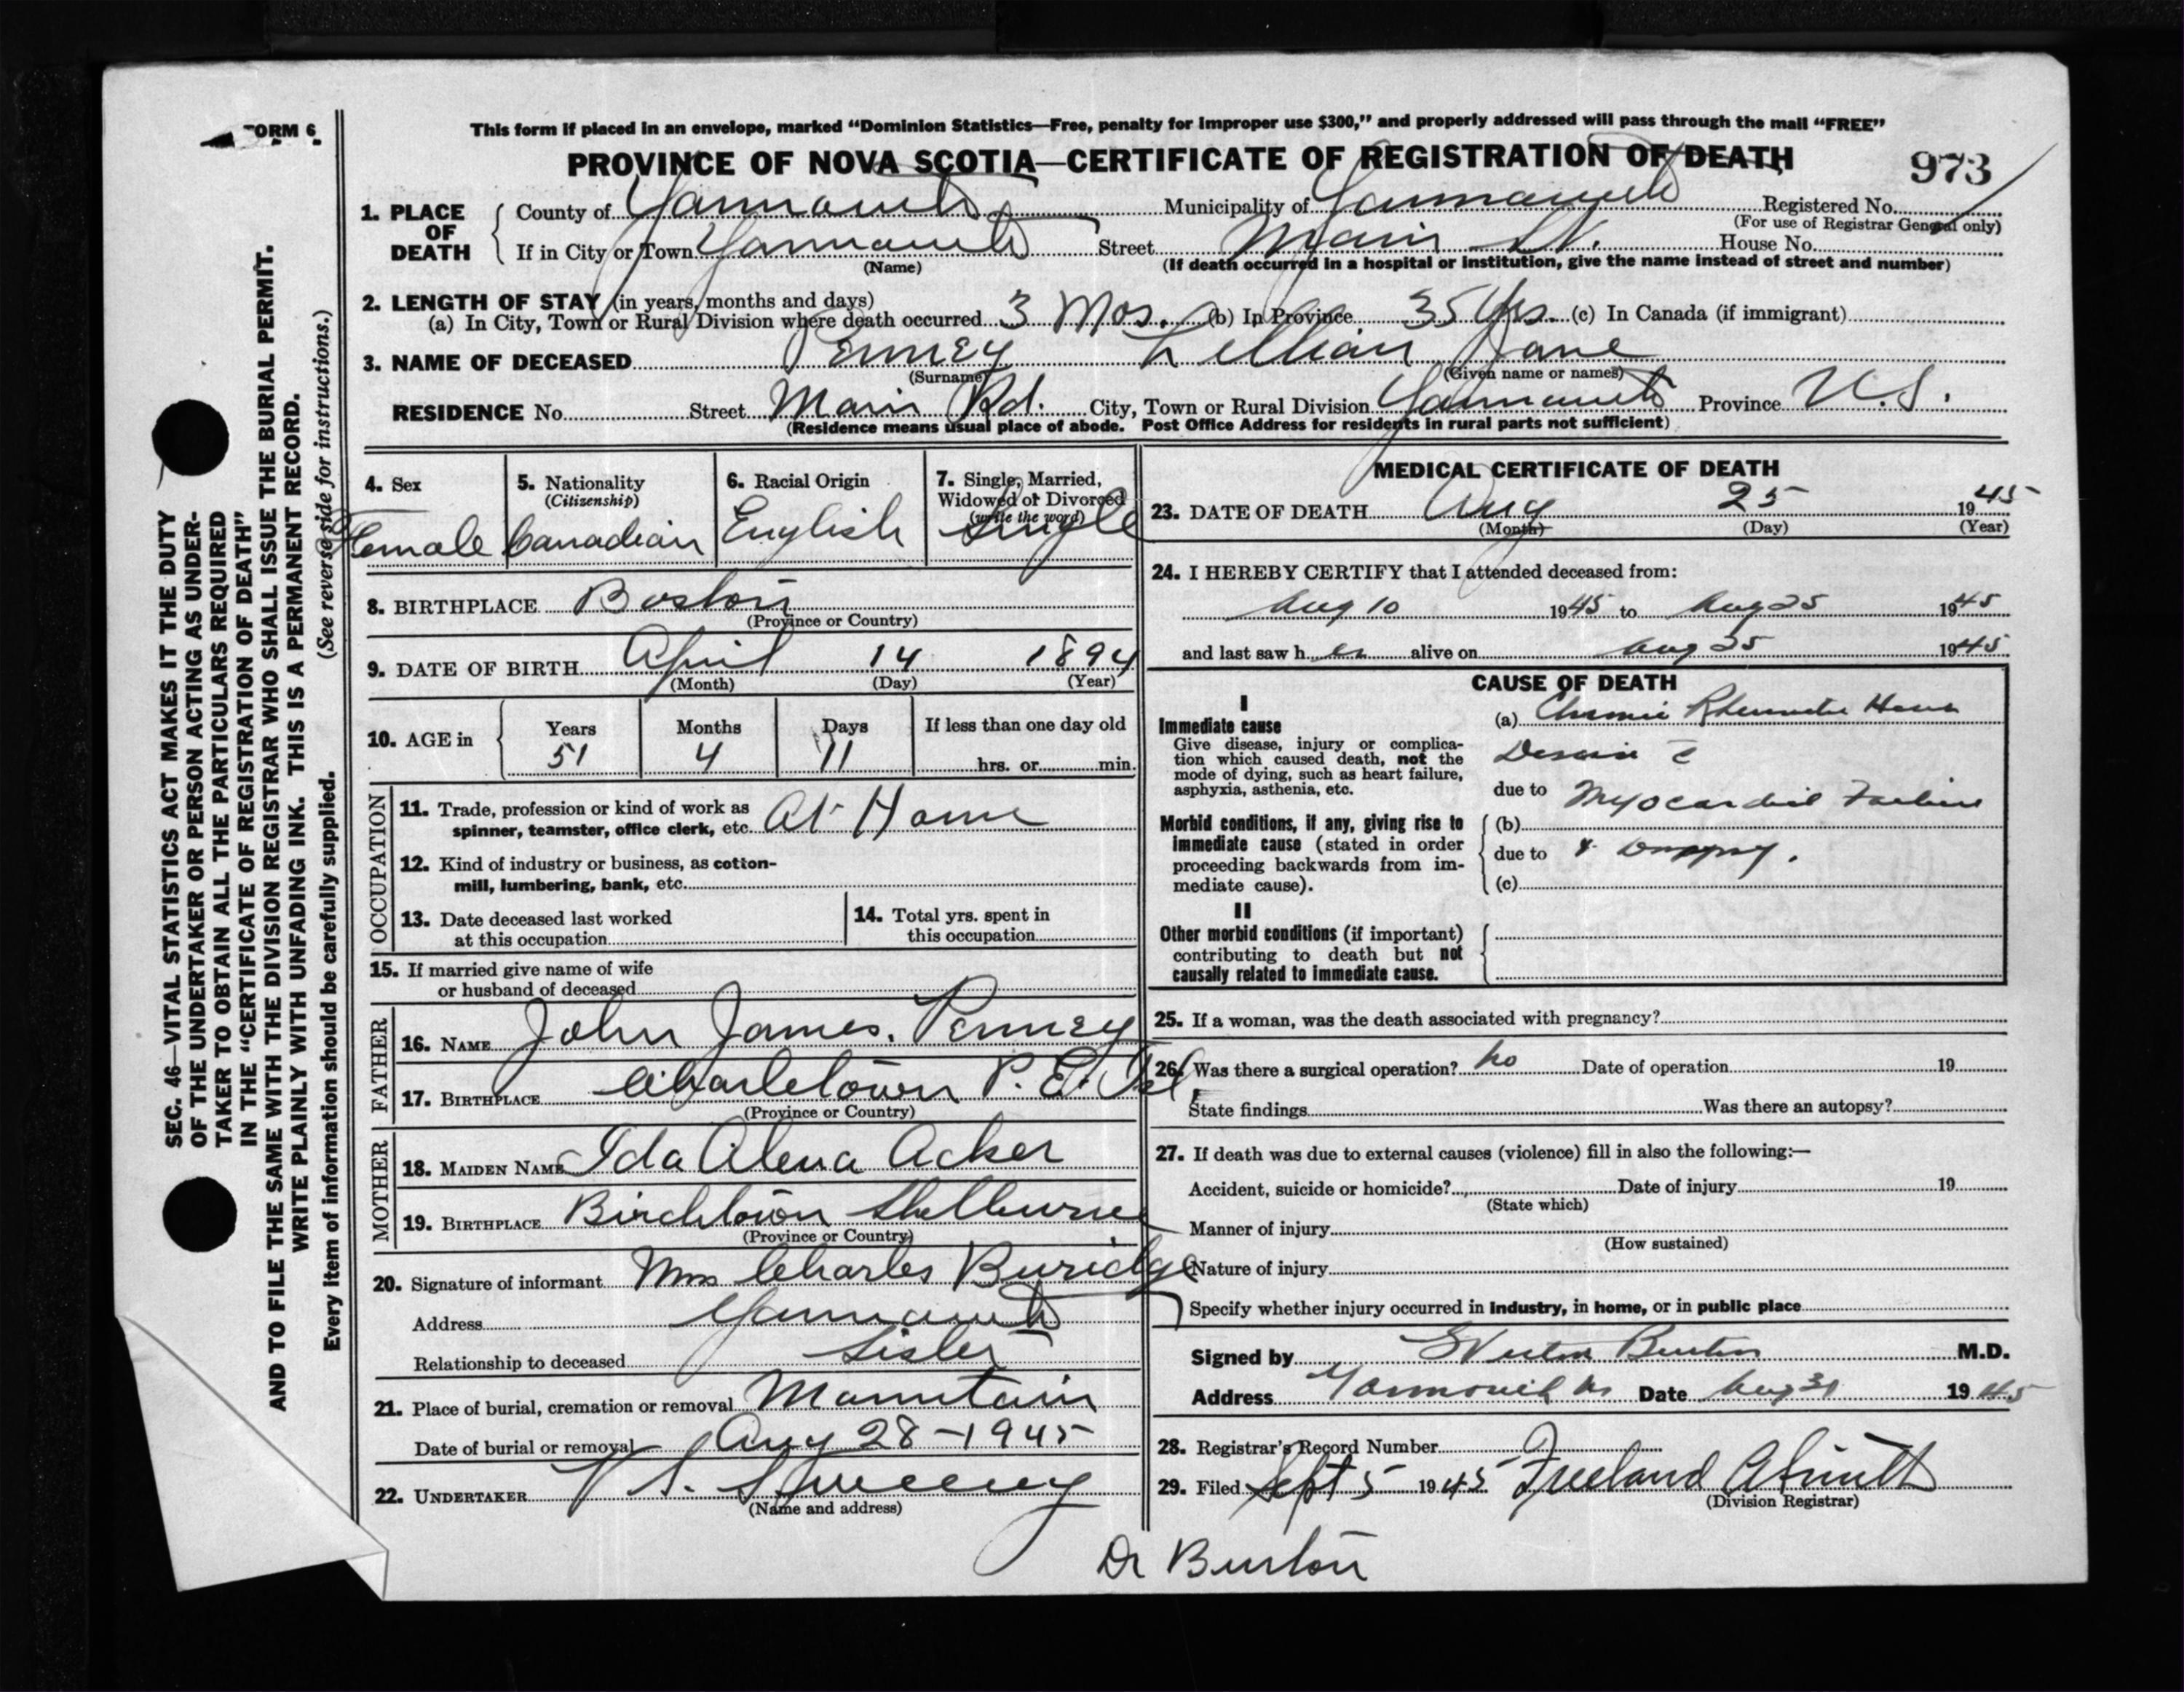 FORM 6
This form if placed in an envelope, marked “Dominion Statistics—Free, penalty for improper use $300,” and properly addressed will pass through the mail “FREE”
PROVINCE OF NOVA SCOTIA—CERTIFICATE OF REGISTRATION OF DEATH 973
1. PLACE OF DEATH
County of Yarmouth Municipality of Yarmouth Registered No.
(For use of Registrar General only)
If in City or Town Yarmouth Street Main St. House No.
(Name) (If death occurred in a hospital or institution, give the name instead of street and number)
2. LENGTH OF STAY (in years, months and days)
(a) In City, Town or Rural Division where death occurred 3 Mos. (b) In Province 35 Yrs. (c) In Canada (if immigrant)
3. NAME OF DECEASED Penney Lillian Jane
(Surname) (Given name or names)
RESIDENCE No. Street Main Rd. City, Town or Rural Division Yarmouth Province N.S.
(Residence means usual place of abode. Post Office Address for residents in rural parts not sufficient)
4. Sex
Female
5. Nationality
(Citizenship)
Canadian
6. Racial Origin
English
7. Single, Married,
Widowed or Divorced
(write the word)
Single
8. BIRTHPLACE Boston
(Province or Country)
9. DATE OF BIRTH April 14 1894
(Month) (Day) (Year)
10. AGE in
Years Months Days If less than one day old
51 4 11 hrs. or min.
OCCUPATION
11. Trade, profession or kind of work as
spinner, teamster, office clerk, etc. At Home
12. Kind of industry or business, as cotton-
mill, lumbering, bank, etc.
13. Date deceased last worked
at this occupation
14. Total yrs. spent in
this occupation
15. If married give name of wife
or husband of deceased
FATHER
16. NAME John James. Penney
17. BIRTHPLACE Charletown P. E. Isl.
(Province or Country)
MOTHER
18. MAIDEN NAME Ida Alena Acker
19. BIRTHPLACE Birchtown Shelburne
(Province or Country)
20. Signature of informant Mrs Charles Buridge
Address Yarmouth
Relationship to deceased Sister
21. Place of burial, cremation or removal Mountain
Date of burial or removal Aug 28-1945
22. UNDERTAKER V. S. Sweeney
(Name and address)
MEDICAL CERTIFICATE OF DEATH
23. DATE OF DEATH Aug 25 1945
(Month) (Day) (Year)
24. I HEREBY CERTIFY that I attended deceased from:
Aug 10 1945 to Aug 25 1945
and last saw her alive on Aug 25 1945
CAUSE OF DEATH
I
Immediate cause
Give disease, injury or complica-
tion which caused death, not the
mode of dying, such as heart failure,
asphyxia, asthenia, etc.
Morbid conditions, if any, giving rise to
immediate cause (stated in order
proceeding backwards from im-
mediate cause).
(a) Chronic Rheumatic Heart
Disease c̄
due to Myocardial Failure
(b)
due to & Dropsy.
(c)
II
Other morbid conditions (if important)
contributing to death but not
causally related to immediate cause.
25. If a woman, was the death associated with pregnancy?
26. Was there a surgical operation? no Date of operation 19
State findings Was there an autopsy?
27. If death was due to external causes (violence) fill in also the following:—
Accident, suicide or homicide? Date of injury 19
(State which)
Manner of injury
(How sustained)
Nature of injury
Specify whether injury occurred in industry, in home, or in public place
Signed by Burton M.D.
Address Yarmouth NS Date Aug 31 1945
28. Registrar's Record Number
29. Filed Sept 5 1945 Freeland A Smith
(Division Registrar)
Dr Burton
SEC. 46—VITAL STATISTICS ACT MAKES IT THE DUTY
OF THE UNDERTAKER OR PERSON ACTING AS UNDER-
TAKER TO OBTAIN ALL THE PARTICULARS REQUIRED
IN THE “CERTIFICATE OF REGISTRATION OF DEATH”
AND TO FILE THE SAME WITH THE DIVISION REGISTRAR WHO SHALL ISSUE THE BURIAL PERMIT.
WRITE PLAINLY WITH UNFADING INK. THIS IS A PERMANENT RECORD.
Every item of information should be carefully supplied. (See reverse side for instructions.)